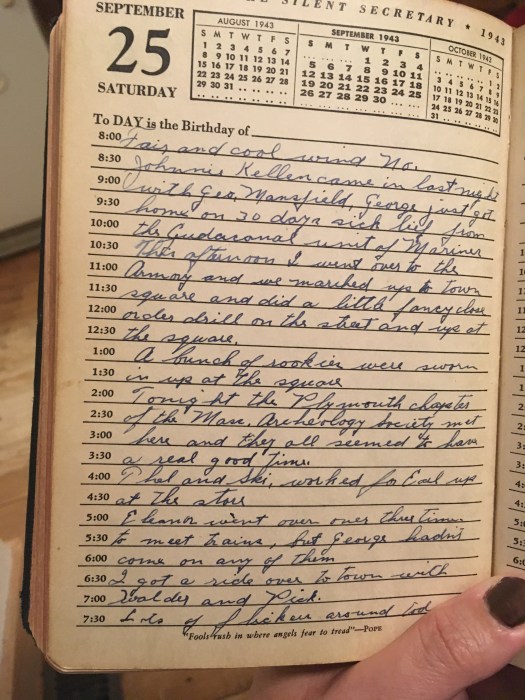 THE SILENT SECRETARY ★ 1943
SEPTEMBER
25
SATURDAY
AUGUST 1943
S M T W T F S
1 2 3 4 5 6 7
8 9 10 11 12 13 14
15 16 17 18 19 20 21
22 23 24 25 26 27 28
29 30 31 . . . .
SEPTEMBER 1943
S M T W T F S
1 2 3 4
5 6 7 8 9 10 11
12 13 14 15 16 17 18
19 20 21 22 23 24 25
26 27 28 29 30 . .
OCTOBER 1943
S M T W T F S
3 4 5 6 7 8 9
10 11 12 13 14 15 16
17 18 19 20 21 22 23
24 25 26 27 28 29 30
31 . . . . . .
To DAY is the Birthday of
8:00 Fair and cool wind No.
8:30 Johnnie Kellen came in last night
9:00 with Geo. Mansfield, George just got
9:30 home on 30 days sick lief from
10:00 the Gudaconal unit of Mariner
10:30 This afternoon I went over to the
11:00 Armory and we marched up to town
11:30 square and did a little fancy close
12:00 order drill on the street and up at
12:30 the square.
1:00 A bunch of rookies were sworn
1:30 in up at the square
2:00 Tonight the Plymouth chapter
2:30 of the Mass. Archeology Society met
3:00 here and they all seemed to have
3:30 a real good time.
4:00 Phal and Ski, worked for Earl up
4:30 at the store
5:00 Eleanor went over over three times
5:30 to meet trains, but George hadn't
6:00 come on any of them
6:30 I got a ride over to town with
7:00 Waldes and Dick.
7:30 Lots of flicker around tod
"Fools rush in where angels fear to tread"—POPE